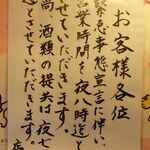 お客様各位
緊急事態宣言に伴い、
営業時間を夜八時迄と
させていただきます。
尚、酒類の提供は夜七
迄とさせていただきます。
店